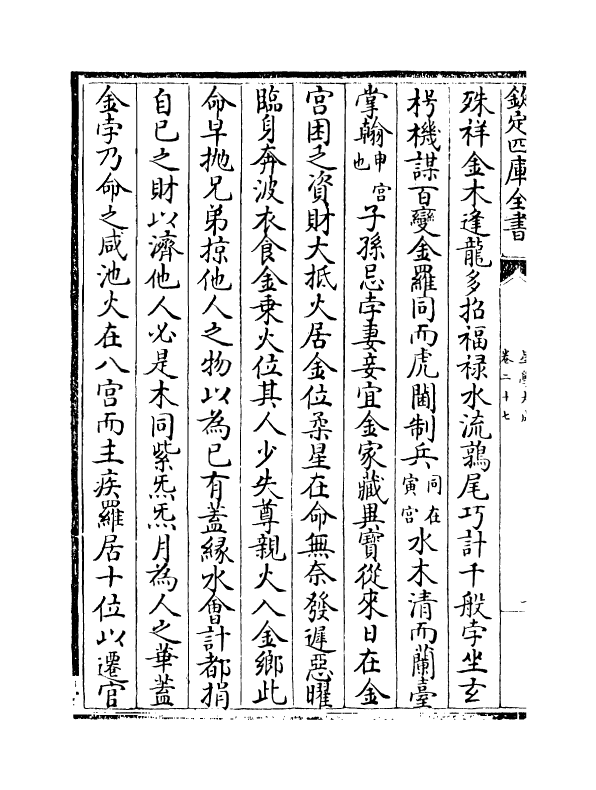 欽定四庫全書
卷二十七
殊祥金木逢龍多招福祿水流鶉尾巧計千般孛坐玄
枵機謀百變金羅同而虎闈制兵同在寅宮水木清而蘭臺
掌翰申宮也子孫忌孛妻妾宜金家藏異寶從來日在金
宮困乏資財大抵火居金位柔星在命無奈發遲惡曜
臨身奔波衣食金乗火位其人少失尊親火入金鄉此
命早抛兄弟掠他人之物以為已有蓋緣水會計都捐
自已之財以濟他人必是木同紫炁炁月為人之華蓋
金孛乃命之咸池火在八宮而主疾羅居十位以遷官